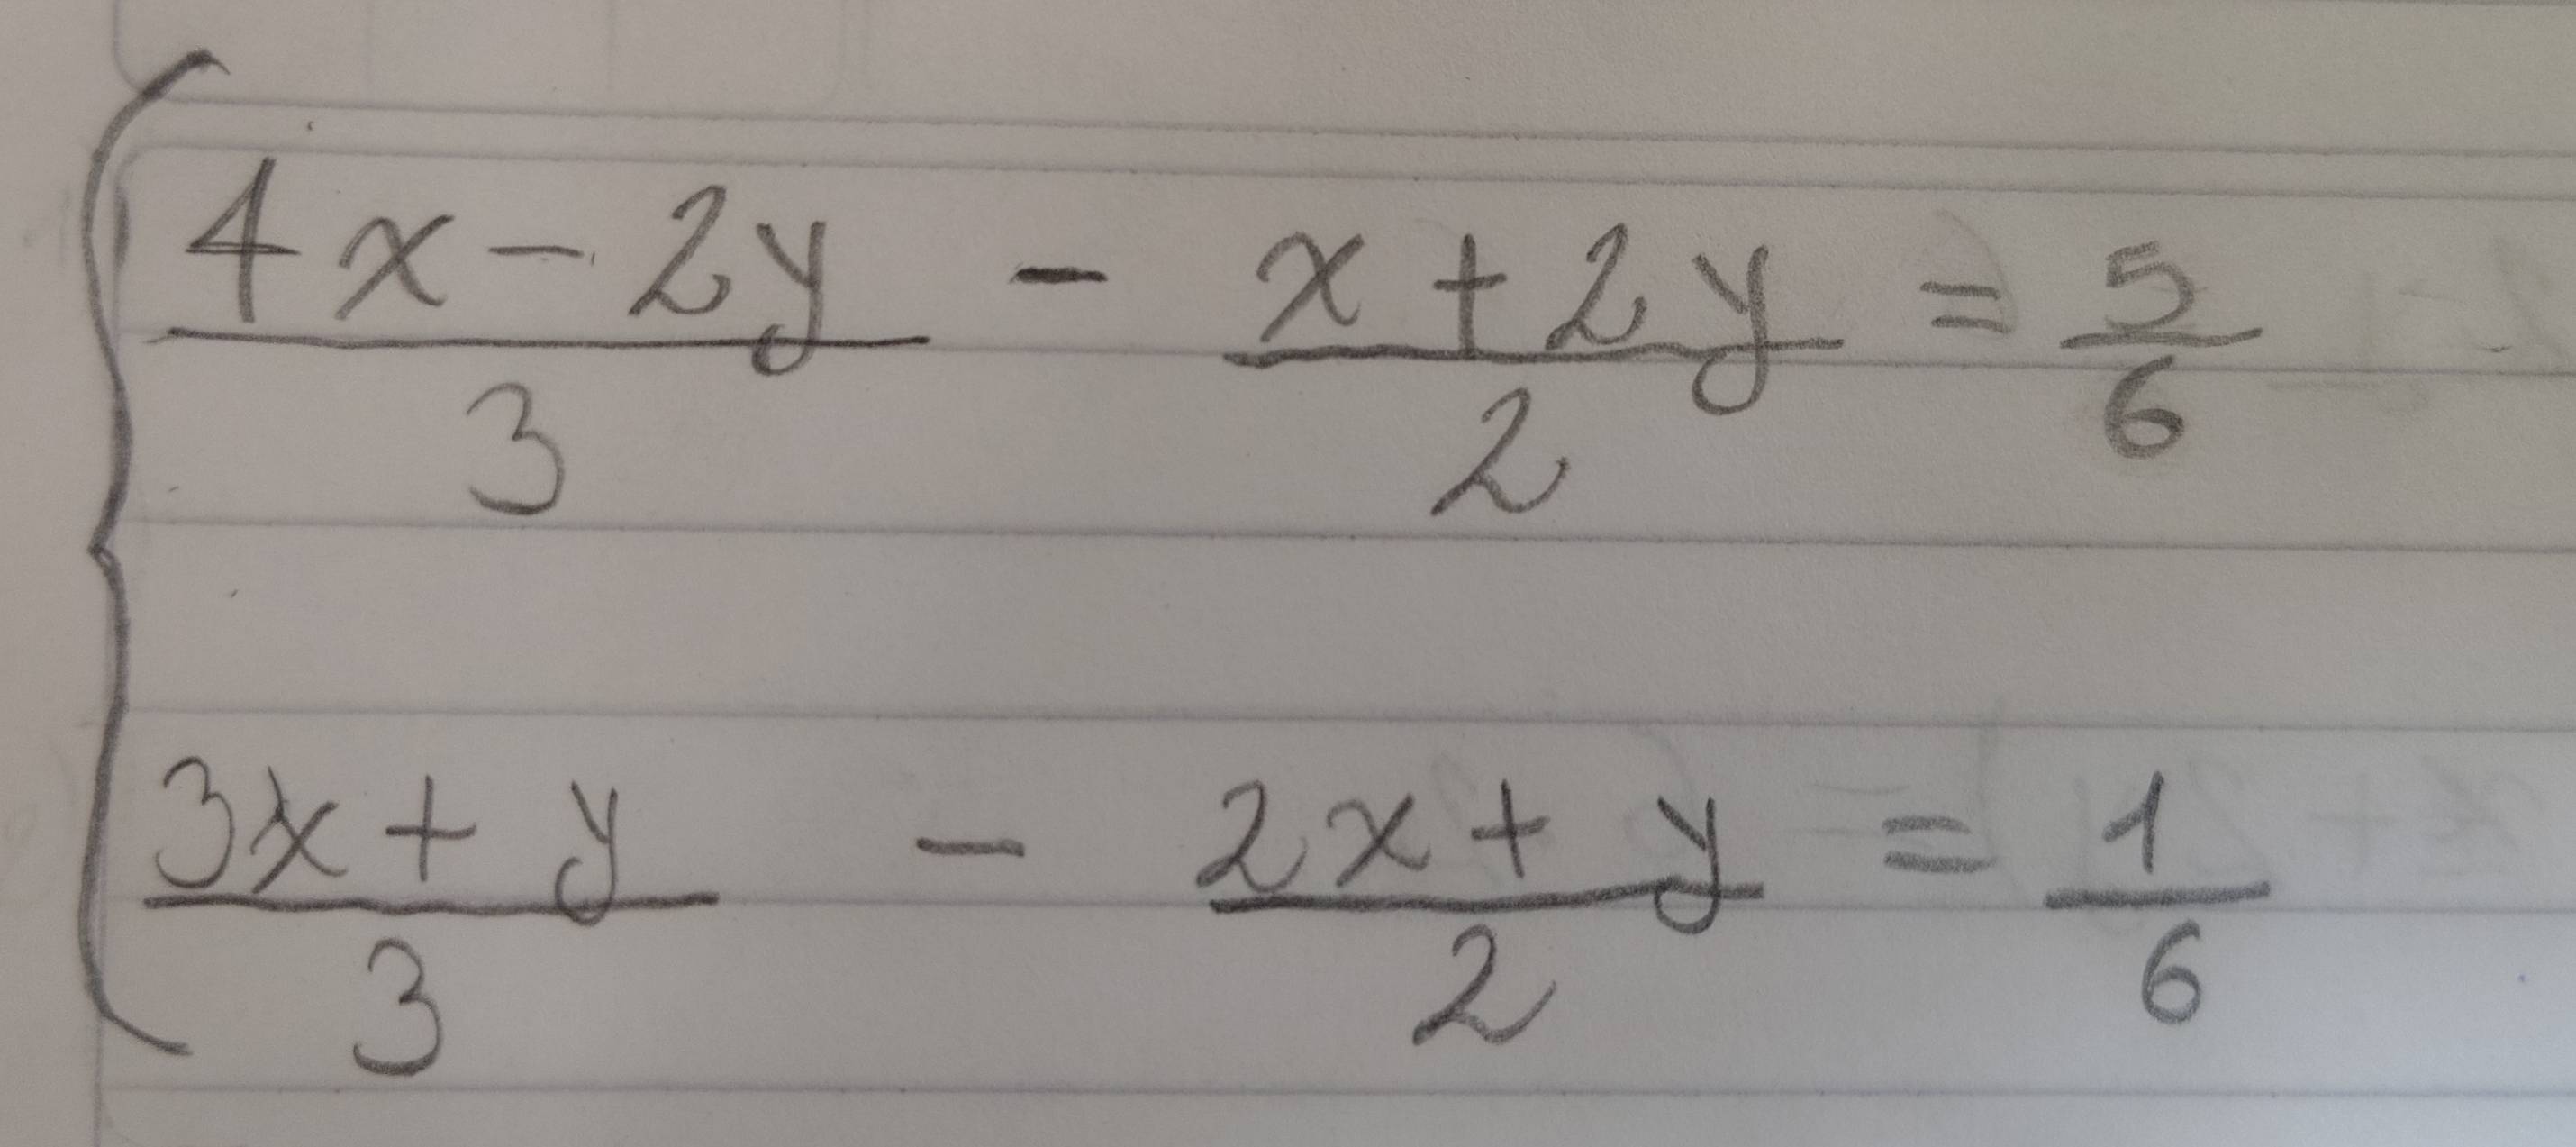 4x - 2y / 3 - x + 2y / 2 = 5/6
3x + y / 3 - 2x + y / 2 = 1/6